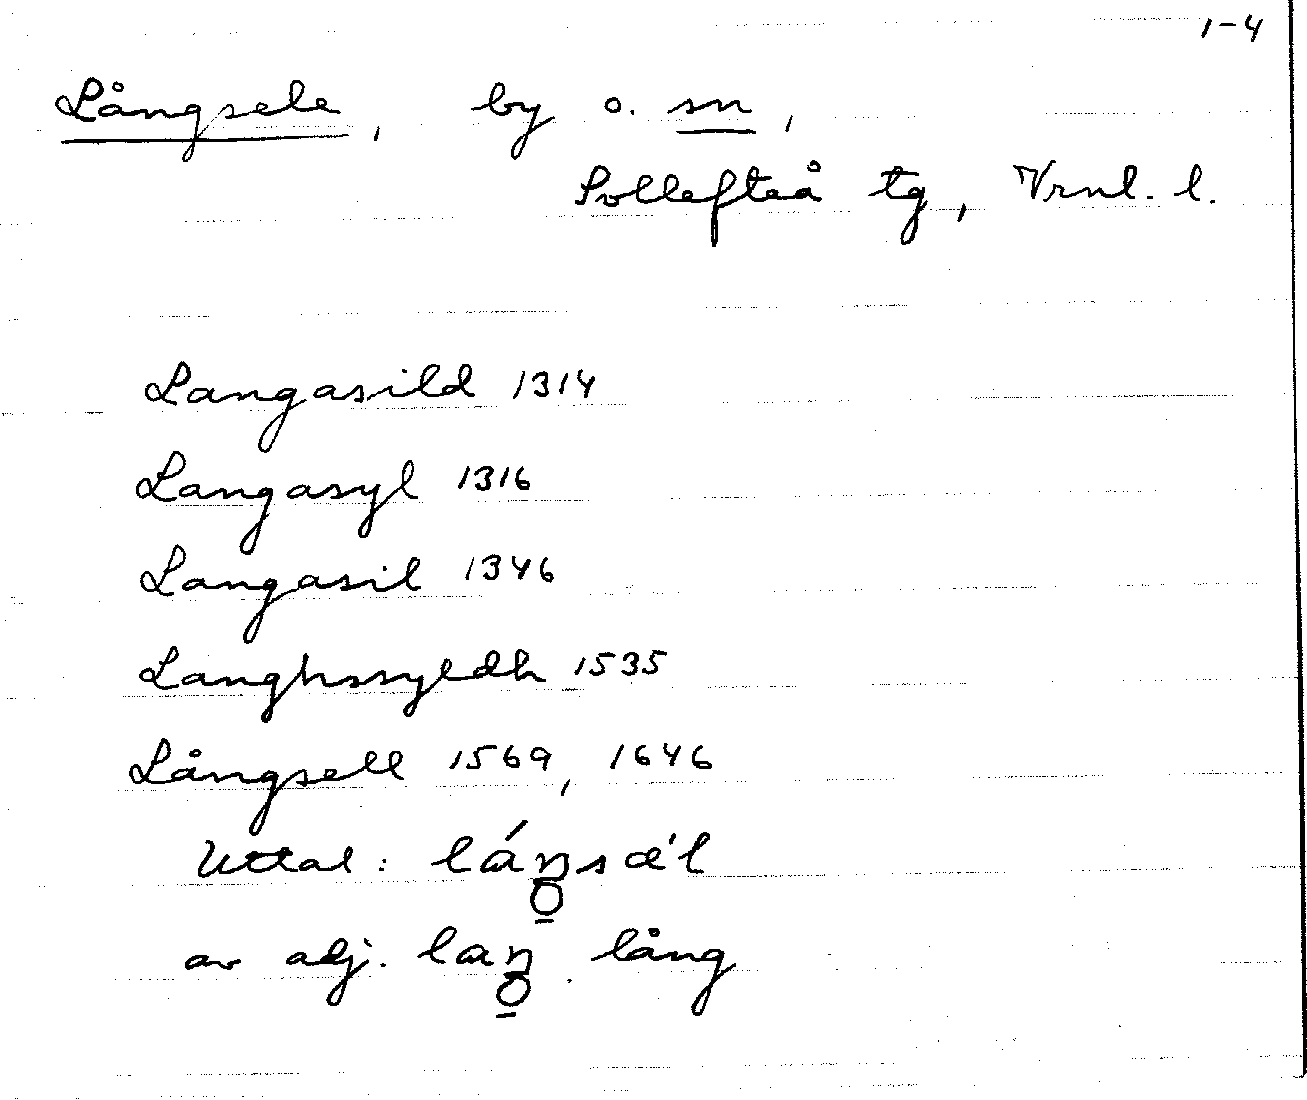 1-4
Långsele, by o. sn,
Sollefteå tg, Vrnl. l.
Langasild 1314
Langasyl 1316
Langasil 1346
Langhssyldh 1535
Långsell 1569, 1646
Uttal: láŋsæ'l
av adj. laŋ. lång